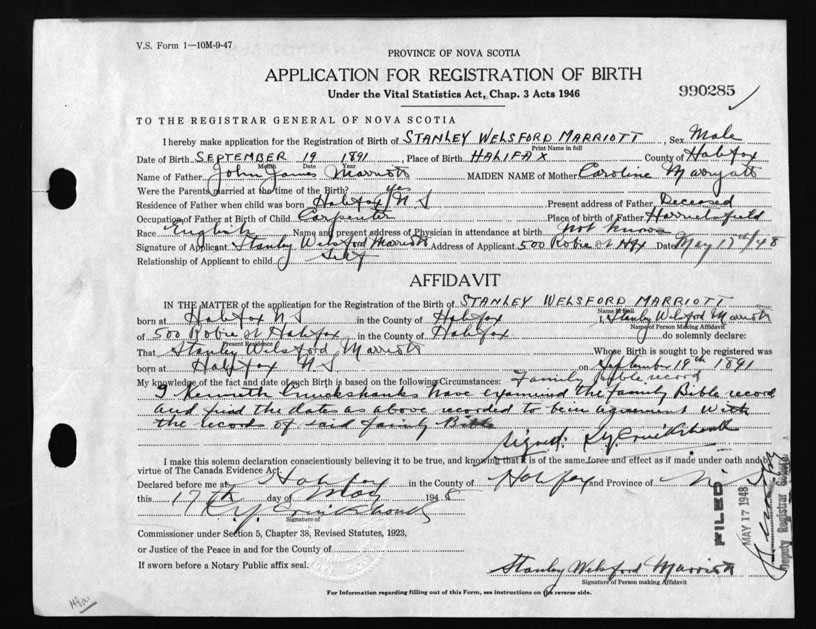 V.S. Form 1—10M-9-47
PROVINCE OF NOVA SCOTIA
APPLICATION FOR REGISTRATION OF BIRTH
Under the Vital Statistics Act, Chap. 3 Acts 1946
990285
TO THE REGISTRAR GENERAL OF NOVA SCOTIA
I hereby make application for the Registration of Birth of STANLEY WELSFORD MARRIOTT, Sex Male
Print Name in full
Date of Birth SEPTEMBER 19 1891, Place of Birth HALIFAX County of Halifax
Month Date Year
Name of Father John James Marriott MAIDEN NAME of Mother Caroline Marryatt
Were the Parents married at the time of the Birth? yes
Residence of Father when child was born Halifax N S Present address of Father Deceased
Occupation of Father at Birth of Child Carpenter Place of birth of Father Harrietsfield
Race English Name and present address of Physician in attendance at birth not known
Signature of Applicant Stanley Welsford Marriott Address of Applicant 500 Robie St Hfx Date May 17th/48
Relationship of Applicant to child Self
AFFIDAVIT
IN THE MATTER of the application for the Registration of the Birth of STANLEY WELSFORD MARRIOTT
Name in full
born at Halifax N S in the County of Halifax I, Stanley Welsford Marriott
Name of Person Making Affidavit
of 500 Robie St Halifax in the County of Halifax do solemnly declare:
Present Residence
That Stanley Welsford Marriott Whose Birth is sought to be registered was
born at Halifax N S on September 19th 1891
My knowledge of the fact and date of such Birth is based on the following Circumstances: Family Bible record
I Kenneth Cruickshanks have examined the family Bible record
and find the dates as above recorded to be in agreement with
the records of said family Bible
Signed:
I make this solemn declaration conscientiously believing it to be true, and knowing that it is of the same force and effect as if made under oath and by
virtue of The Canada Evidence Act.
Declared before me at Halifax in the County of Halifax and Province of N S
this 17th day of May 1948
Signature of
Commissioner under Section 5, Chapter 38, Revised Statutes, 1923,
or Justice of the Peace in and for the County of
If sworn before a Notary Public affix seal.
Stanley Welsford Marriott
Signature of Person making Affidavit
For Information regarding filling out of this Form, see instructions on the reverse side.
FILED
MAY 17 1948
Deputy Registrar General